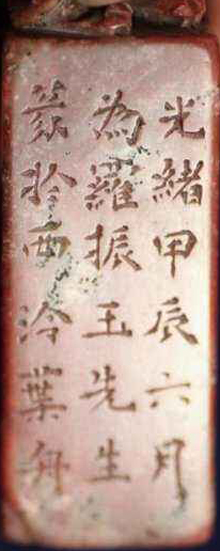 光緒甲辰六月
為羅振玉先生
篆於西泠葉舟